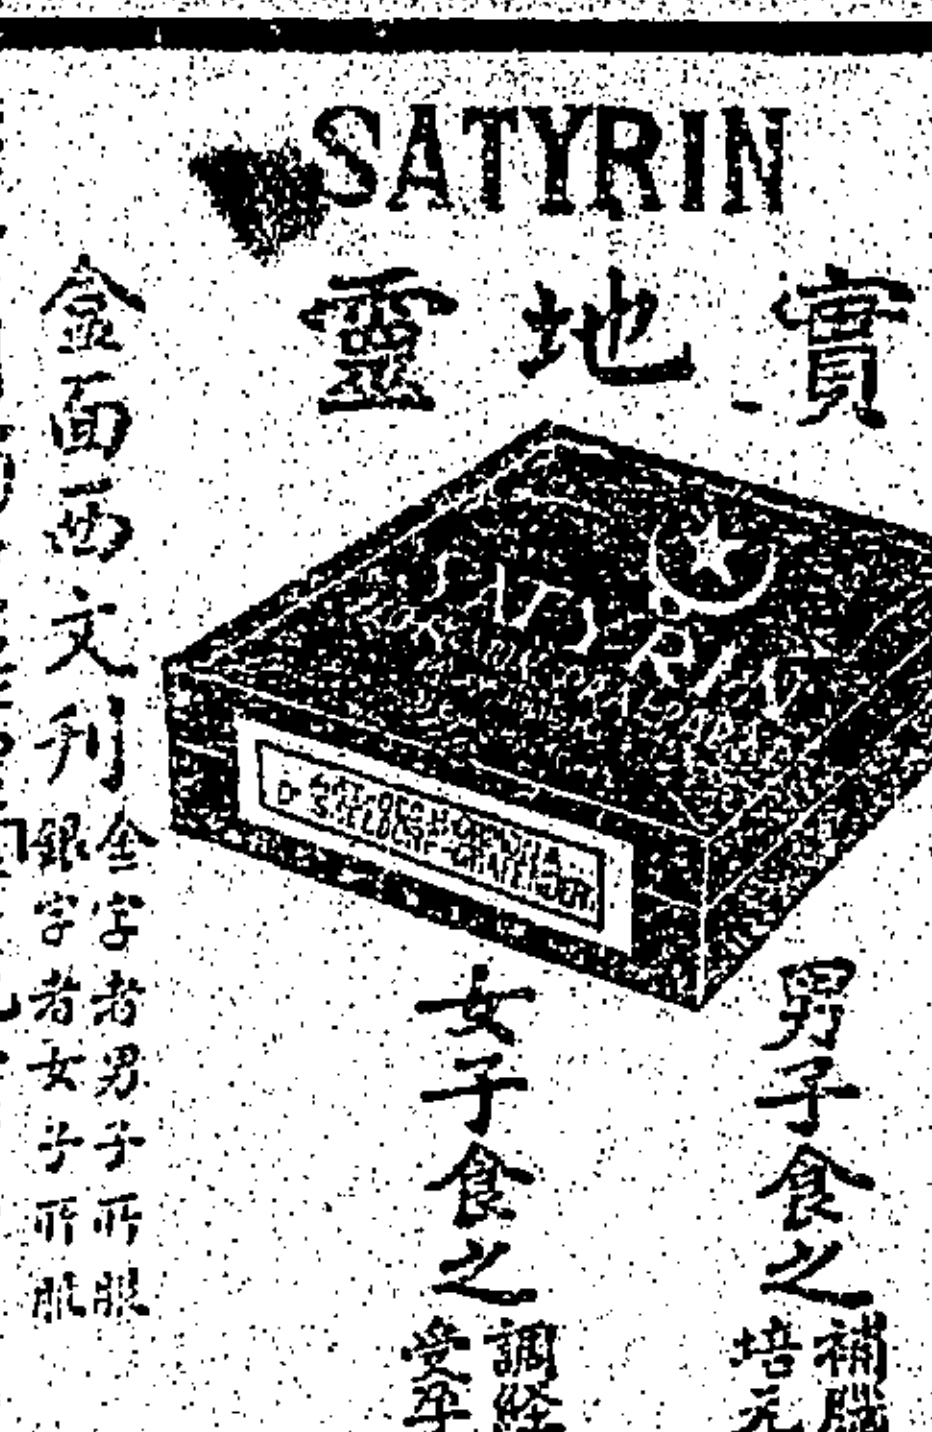 SATYRIN
實地靈
SATYRIN
男子食之
補腦
培元
女子食之
調經
受孕
盒面西文刊
金字者男子所服
銀字者女子所服